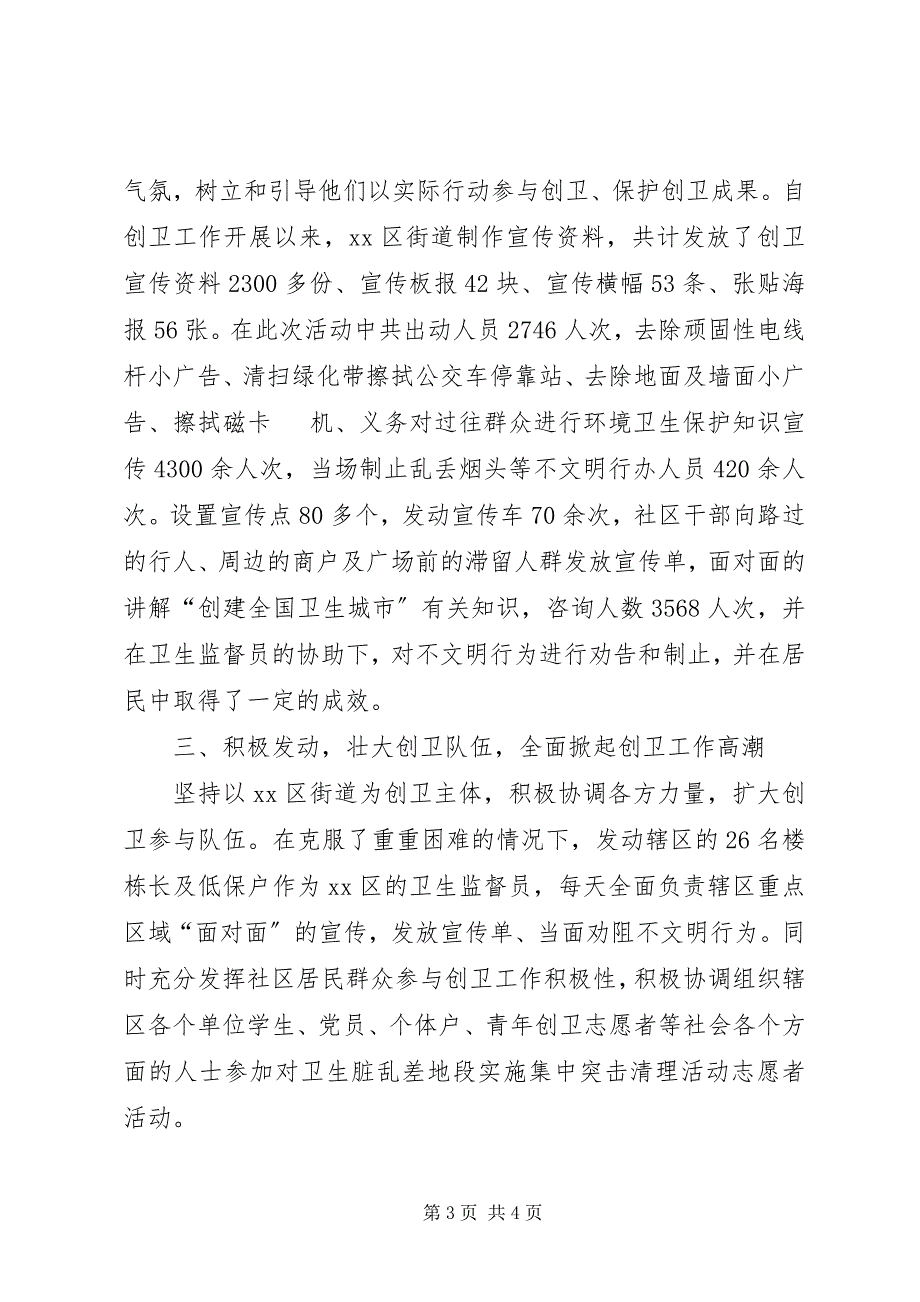 气氛，树立和引导他们以实际行动参与创卫、保护创卫成果。自
创卫工作开展以来，xx 区街道制作宣传资料，共计发放了创卫
宣传资料 2300 多份、宣传板报 42 块、宣传横幅 53 条、张贴海
报 56 张。在此次活动中共出动人员 2746 人次，去除顽固性电线
杆小广告、清扫绿化带擦拭公交车停靠站、去除地面及墙面小广
告、擦拭磁卡　机、义务对过往群众进行环境卫生保护知识宣
传 4300 余人次，当场制止乱丢烟头等不文明行办人员 420 余人
次。设置宣传点 80 多个，发动宣传车 70 余次，社区干部向路过
的行人、周边的商户及广场前的滞留人群发放宣传单，面对面的
讲解“创建全国卫生城市〞有关知识，咨询人数 3568 人次，并
在卫生监督员的协助下，对不文明行为进行劝告和制止，并在居
民中取得了一定的成效。
三、积极发动，壮大创卫队伍，全面掀起创卫工作高潮
坚持以 xx 区街道为创卫主体，积极协调各方力量，扩大创
卫参与队伍。在克服了重重困难的情况下，发动辖区的 26 名楼
栋长及低保户作为 xx 区的卫生监督员，每天全面负责辖区重点
区域“面对面〞的宣传，发放宣传单、当面劝阻不文明行为。同
时充分发挥社区居民群众参与创卫工作积极性，积极协调组织辖
区各个单位学生、党员、个体户、青年创卫志愿者等社会各个方
面的人士参加对卫生脏乱差地段实施集中突击清理活动志愿者
活动。
第 3 页 共 4 页